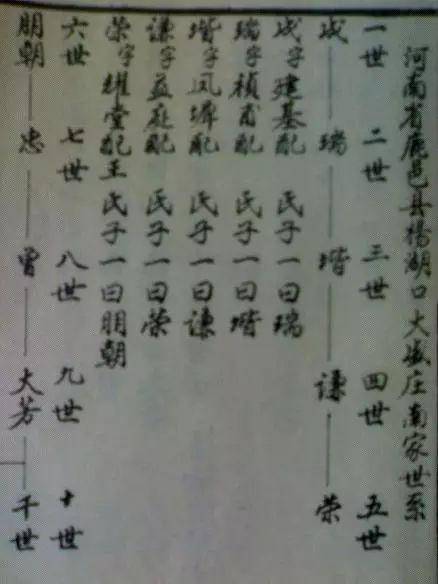 河南省鹿邑县杨湖口大张庄南家世系
一世 二世 三世 四世 五世
成 瑞 堦 谦 荣
成字建基配 氏子一曰瑞
瑞字祯甫配 氏子一曰堦
堦字凤墀配 氏子一曰谦
谦字益庭配 氏子一曰荣
荣字耀堂配王氏子一曰朋朝
六世 七世 八世 九世 十世
朋朝 忠 曾 大芳 千世